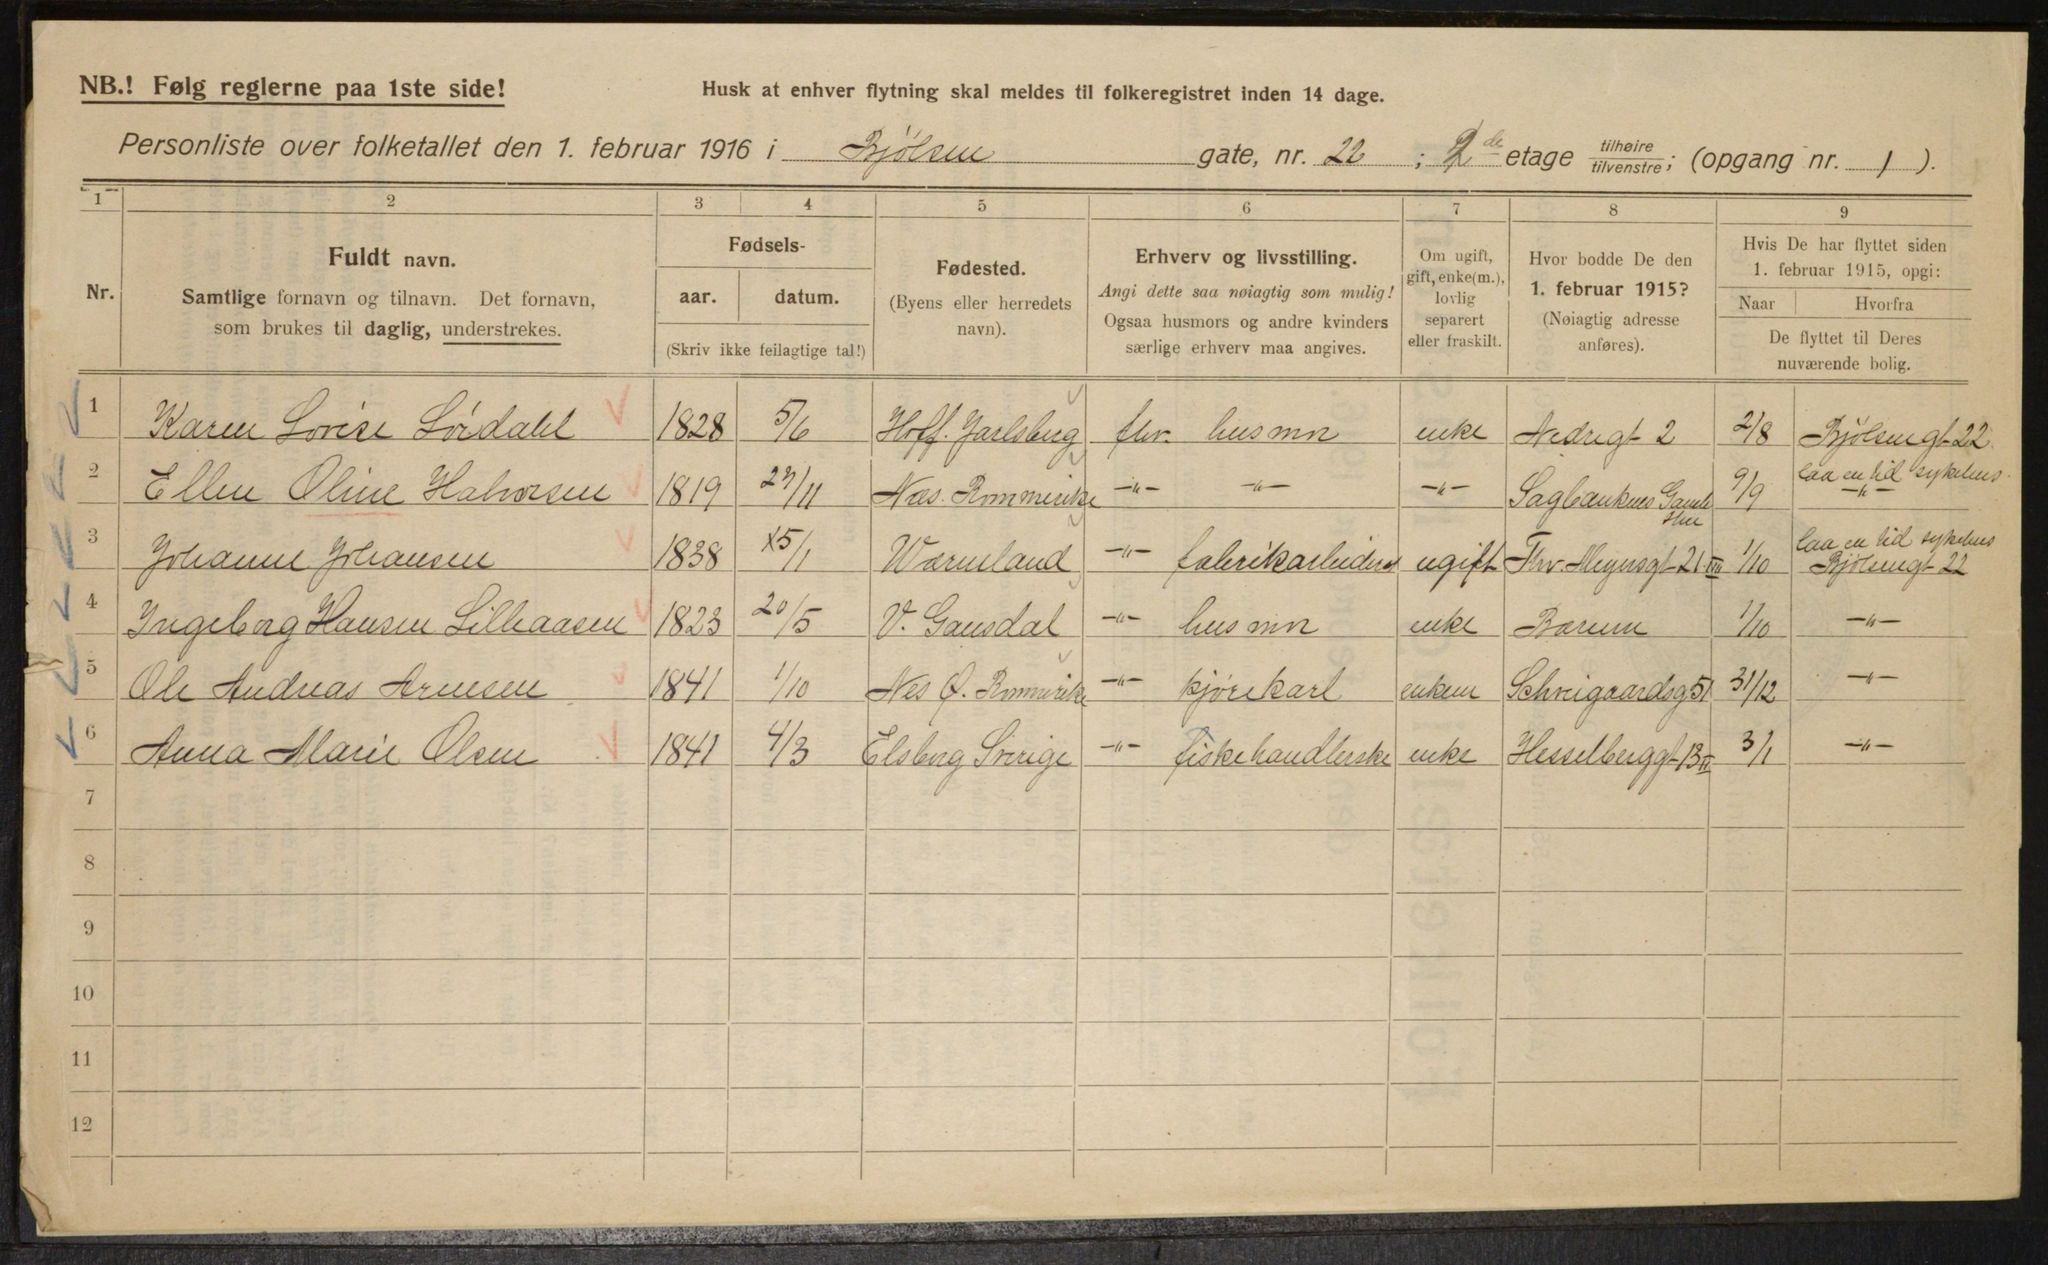 NB.! Følg reglerne paa 1ste side!
Husk at enhver flytning skal meldes til folkeregistret inden 14 dage.
Personliste over folketallet den 1. februar 1916 i Bjølsen gate, nr. 22 ; 2 de etage tilhøire tilvenstre; (opgang nr. 1 ).
1 2 3 4 5 6 7 8 9
Nr.
Fuldt navn.
Samtlige fornavn og tilnavn. Det fornavn,
som brukes til daglig, understrekes.
Fødsels-
aar. datum.
(Skriv ikke feilagtige tal!)
Fødested.
(Byens eller herredets
navn).
Erhverv og livsstilling.
Angi dette saa nøiagtig som mulig!
Ogsaa husmors og andre kvinders
særlige erhverv maa angives.
Om ugift,
gift, enke(m.),
lovlig
separert
eller fraskilt.
Hvor bodde De den
1. februar 1915?
(Nøiagtig adresse
anføres).
Hvis De har flyttet siden
1. februar 1915, opgi:
Naar Hvorfra
De flyttet til Deres
nuværende bolig.
1 Karen Lovise Sørdahl 1828 5/6 Hoff. Jarlsberg fhv. husmor enke Nedregt 2 2/8 Bjølsengt 22.
2 Ellen Oline Halvorsen 1819 27/11 Næs. Rommerike -"- -"- -"- Sagbankens Gamle 9/9 laa en tid sykehus. -"-
3 Johanne Johansen 1838 15/1 Wærmland -"- fabrikarbeiders ugift Thv. Meyersgt 21 III 1/10 laa en tid sykehus Bjølsengt 22
4 Ingeborg Hansen Lilleaasen 1823 20/5 V. Gausdal -"- husmor enke Bærum 1/10 -"-
5 Ole Andreas Arnesen 1841 1/10 Nes Ø. Rommerike -"- kjørekarl enkem Schweigaardsg 51 31/12 -"-
6 Anna Marie Olsen 1841 4/3 Elsborg Sverige -"- fiskehandlerske enke Hesselberggt 13 II 3/1 -"-
7
8
9
10
11
12